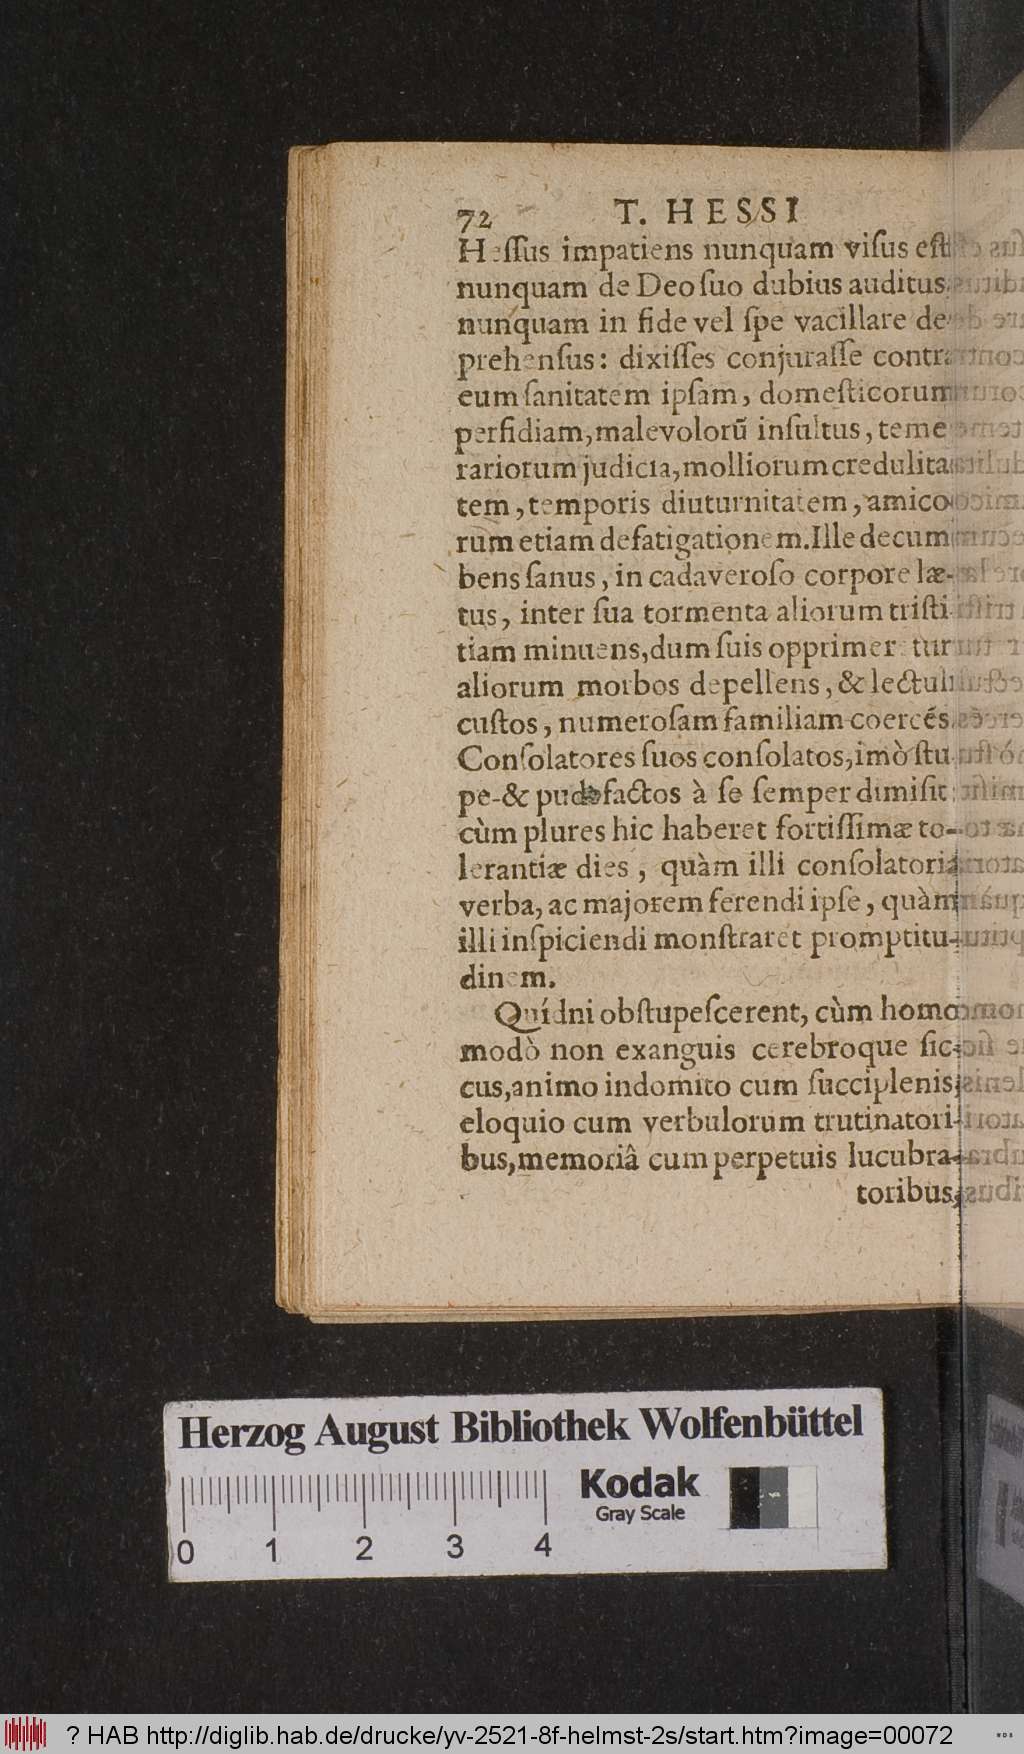 72 T. HESSI
Hessus impatiens nunquam visus est
nunquam de Deo suo dubius auditus
nunquam in fide vel spe vacillare de-
prehensus: dixisses conjurasse contra
eum sanitatem ipsam, domesticorum
perfidiam, malevolorũ insultus, teme
rariorum judicia, molliorum credulita
tem, temporis diuturnitatem, amico
rum etiam defatigationem. Ille decum
bens sanus, in cadaveroso corpore læ-
tus, inter sua tormenta aliorum tristi
tiam minuens, dum suis opprimeretur
aliorum morbos depellens, & lectuli
custos, numerosam familiam coercés.
Consolatores suos consolatos, imò stu
pe- & pudefactos à se semper dimisit:
cùm plures hic haberet fortissimæ to-
lerantiæ dies, quàm illi consolatoria
verba, ac majorem ferendi ipse, quàm
illi inspiciendi monstraret promptitu-
dinem.
Quídni obstupescerent, cùm homo
modò non exanguis cerebroque sic-
cus, animo indomito cum succiplenis,
eloquio cum verbulorum trutinatori-
bus, memoriâ cum perpetuis lucubra-
toribus,
Herzog August Bibliothek Wolfenbüttel
Kodak
Gray Scale
0 1 2 3 4
? HAB http://diglib.hab.de/drucke/yv-2521-8f-helmst-2s/start.htm?image=00072